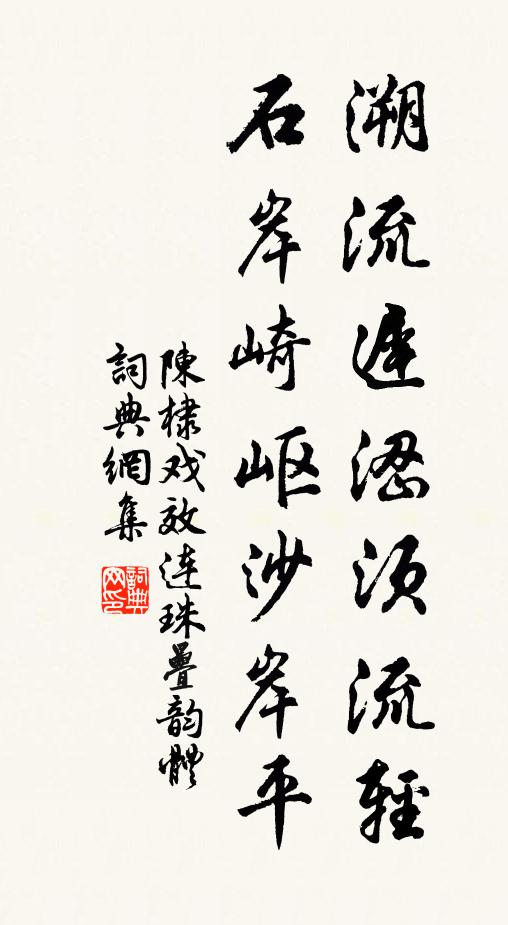 溯流遲澀順流輕
石岸崎岖沙岸平
陳棣戏效连珠疊韵體
詞典網集
詞典网印